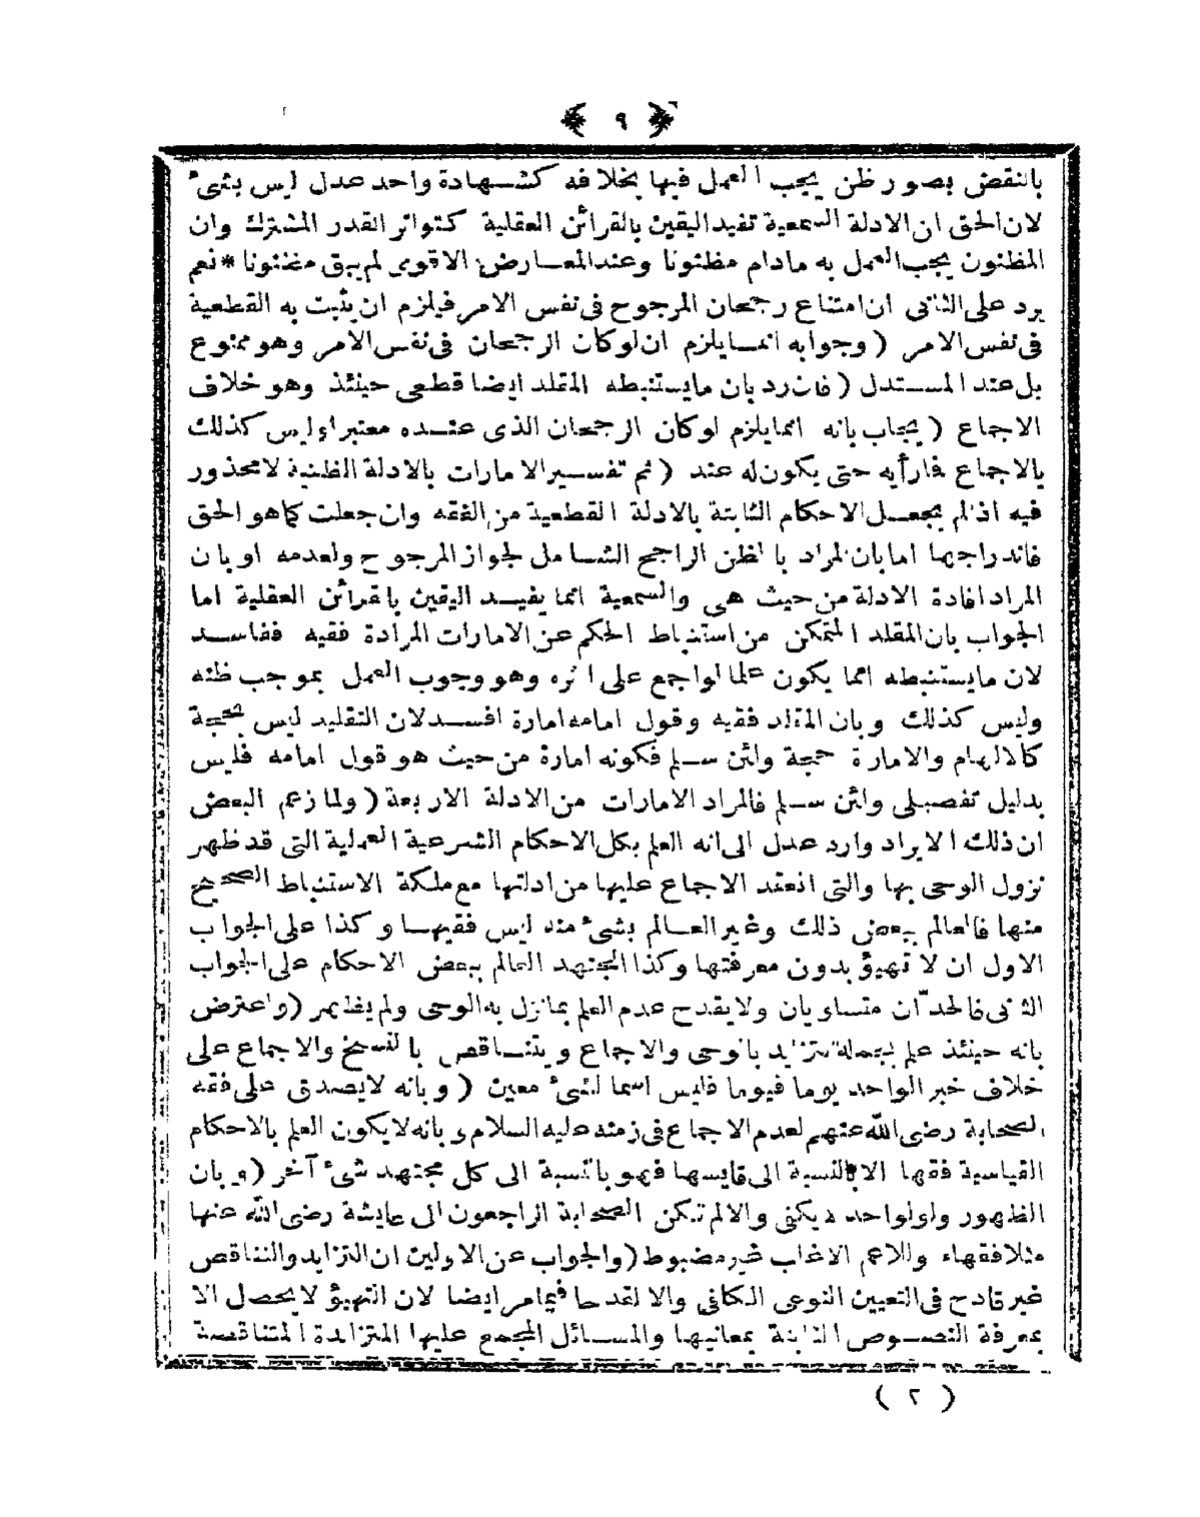 ﴿ ٩ ﴾
بالنقض بصور ظن يجب العمل فيها بخلافه كشهادة واحد عدل ليس بشئ
لان الحق ان الادلة السمعية تفيد اليقين بالقرائن العقلية كتواتر القدر المشترك وان
المظنون يجب العمل به مادام مظنونا وعند المعارض الاقوى لم يبق مظنونا * نعم
يرد على الثانى ان امتناع رجحان المرجوح فى نفس الامر فيلزم ان يثبت به القطعية
فى نفس الامر ( وجوابه انما يلزم ان لو كان الرجحان فى نفس الامر وهو ممنوع
بل عند المستدل ( فان رد بان ما يستنبطه المقلد ايضا قطعى حينئذ وهو خلاف
الاجماع ( يجاب بانه انما يلزم لو كان الرجحان الذى عنده معتبرا وليس كذلك
بالاجماع فارأيه حتى يكون له عند ( ثم تفسير الامارات بالادلة الظنية لا محذور
فيه اذ لم يجعل الاحكام الثابتة بالادلة القطعية من الفقه وان جعلت كما هو الحق
فاندراجها اما بان المراد بالظن الراجح الشامل لجواز المرجوح ولعدمه او بان
المراد افادة الادلة من حيث هى والسمعية انما يفيد اليقين بالقرائن العقلية اما
الجواب بان المقلد المتمكن من استنباط الحكم عن الامارات المرادة فقيه ففاسد
لان ما يستنبطه انما يكون علما لو اجمع على اثره وهو وجوب العمل بموجب ظنه
وليس كذلك وبان المقلد فقيه وقول امامه امارة افسد لان التقليد ليس بحجة
كالالهام والامارة حجة ولئن سلم فكونه امارة من حيث هو قول امامه فليس
بدليل تفصيلى ولئن سلم فالمراد الامارات من الادلة الاربعة ( ولما زعم البعض
ان ذلك الايراد وارد عدل الى انه العلم بكل الاحكام الشرعية العملية التى قد ظهر
نزول الوحى بها والتى انعقد الاجماع عليها من ادلتها مع ملكة الاستنباط الصحيح
منها فالعالم ببعض ذلك وغير العالم بشئ منه ليس فقيها وكذا على الجواب
الاول ان لا تهيؤ بدون معرفتها وكذا المجتهد العالم ببعض الاحكام على الجواب
الثانى فالحدّان متساويان ولا يقدح عدم العلم بما نزل به الوحى ولم يظهر ( واعترض
بانه حينئذ علم بجملة تتزايد بالوحى والاجماع ويتناقص بالنسخ والاجماع على
خلاف خبر الواحد يوما فيوما فليس اسما لشئ معين ( وبانه لا يصدق على فقه
الصحابة رضى الله عنهم لعدم الاجماع فى زمنه عليه السلام وبانه لا يكون العلم بالاحكام
القياسية فقها الا بالنسبة الى قايسها فهو بالنسبة الى كل مجتهد شئ آخر ( وبان
الظهور ولو لواحد لا يكفى والا لم تكن الصحابة الراجعون الى عايشة رضى الله عنها
مثلا فقهاء وللاعم الاغلب غير مضبوط ( والجواب عن الاولين ان التزايد والتناقص
غير قادح فى التعيين النوعى الكافى والا لقدحا فيما مر ايضا لان التهيؤ لا يحصل الا
بمعرفة النصوص الثابتة بمعانيها والمسائل المجمع عليها المتزايدة المتناقصة
( ٢ )